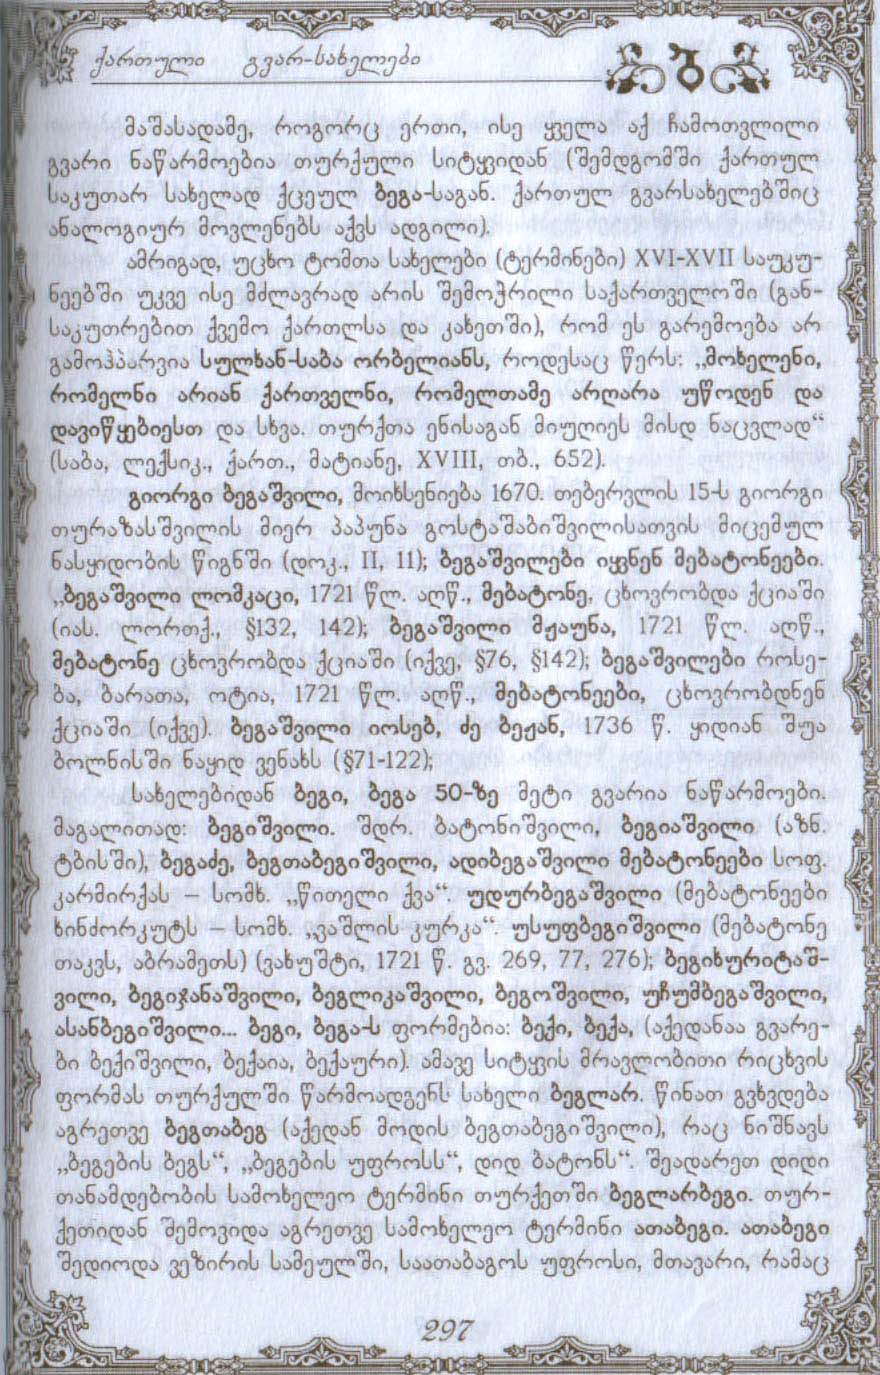 ქართული გვარ-სახელები
მაშასადამე, როგორც ერთი, ისე ყველა აქ ჩამოთვლილი
გვარი ნაწარმოებია თურქული სიტყვიდან (შემდგომში ქართულ
საკუთარ სახელად ქცეულ ბეგა-საგან. ქართულ გვარსახელებშიც
ანალოგიურ მოვლენებს აქვს ადგილი).
ამრიგად, უცხო ტომთა სახელები (ტერმინები) XVI-XVII საუკუ-
ნეებში უკვე ისე მძლავრად არის შემოჭრილი საქართველოში (გან-
საკუთრებით ქვემო ქართლსა და კახეთში), რომ ეს გარემოება არ
გამოჰპარვია სულხან-საბა ორბელიანს, როდესაც წერს: „მოხელენი,
რომელნი არიან ქართველნი, რომელთამე არღარა უწოდენ და
დავიწყებიესთ და სხვა. თურქთა ენისაგან მიუღიეს მისდ ნაცვლად“
(საბა, ლექსიკ., ქართ., მატიანე, XVIII, თბ., 652).
გიორგი ბეგაშვილი, მოიხსენიება 1670. თებერვლის 15-ს გიორგი
თურაზასშვილის მიერ პაპუნა გოსტაშაბიშვილისათვის მიცემულ
ნასყიდობის წიგნში (დოკ., II, 11); ბეგაშვილები იყვნენ მებატონეები.
„ბეგაშვილი ლომკაცი, 1721 წლ. აღწ., მებატონე, ცხოვრობდა ქციაში
(იას. ლორთქ., §132, 142); ბეგაშვილი მჟაუნა, 1721 წლ. აღწ.,
მებატონე ცხოვრობდა ქციაში (იქვე, §76, §142); ბეგაშვილები როსე-
ბა, ბარათა, ოტია, 1721 წლ. აღწ., მებატონეები, ცხოვრობდნენ
ქციაში (იქვე). ბეგაშვილი იოსებ, ძე ბეჟან, 1736 წ. ყიდიან შუა
ბოლნისში ნაყიდ ვენახს (§71-122);
სახელებიდან ბეგი, ბეგა 50-ზე მეტი გვარია ნაწარმოები.
მაგალითად: ბეგიშვილი. შდრ. ბატონიშვილი, ბეგიაშვილი (აზნ.
ტბისში), ბეგაძე, ბეგთაბეგიშვილი, ადიბეგაშვილი მებატონეები სოფ.
კარმირქას – სომხ. „წითელი ქვა“. უდურბეგაშვილი (მებატონეები
ხინძორკუტს – სომხ. „ვაშლის კურკა“. უსუფბეგიშვილი (მებატონე
თაკვს, აბრამეთს) (ვახუშტი, 1721 წ. გვ. 269, 77, 276); ბეგიხურიტაშ-
ვილი, ბეგიჯანაშვილი, ბეგლიკაშვილი, ბეგოშვილი, უჩუმბეგაშვილი,
ასანბეგიშვილი... ბეგი, ბეგა-ს ფორმებია: ბექი, ბექა, (აქედანაა გვარე-
ბი ბექიშვილი, ბექაია, ბექაური). ამავე სიტყვის მრავლობითი რიცხვის
ფორმას თურქულში წარმოადგენს სახელი ბეგლარ. წინათ გვხვდება
აგრეთვე ბეგთაბეგ (აქედან მოდის ბეგთაბეგიშვილი), რაც ნიშნავს
„ბეგების ბეგს“, „ბეგების უფროსს“, დიდ ბატონს“. შეადარეთ დიდი
თანამდებობის სამოხელეო ტერმინი თურქეთში ბეგლარბეგი. თურ-
ქეთიდან შემოვიდა აგრეთვე სამოხელეო ტერმინი ათაბეგი. ათაბეგი
შედიოდა ვეზირის სამეულში, საათაბაგოს უფროსი, მთავარი, რამაც
297